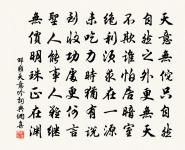 天意無佗只自然
自然之外更無天
不欺誰怕居暗室
絕利須求在一源
未吃力時猶有說
到收功處更何言
聖人能事人難繼
無價明珠正在淵
邵雍天意吟詞典網